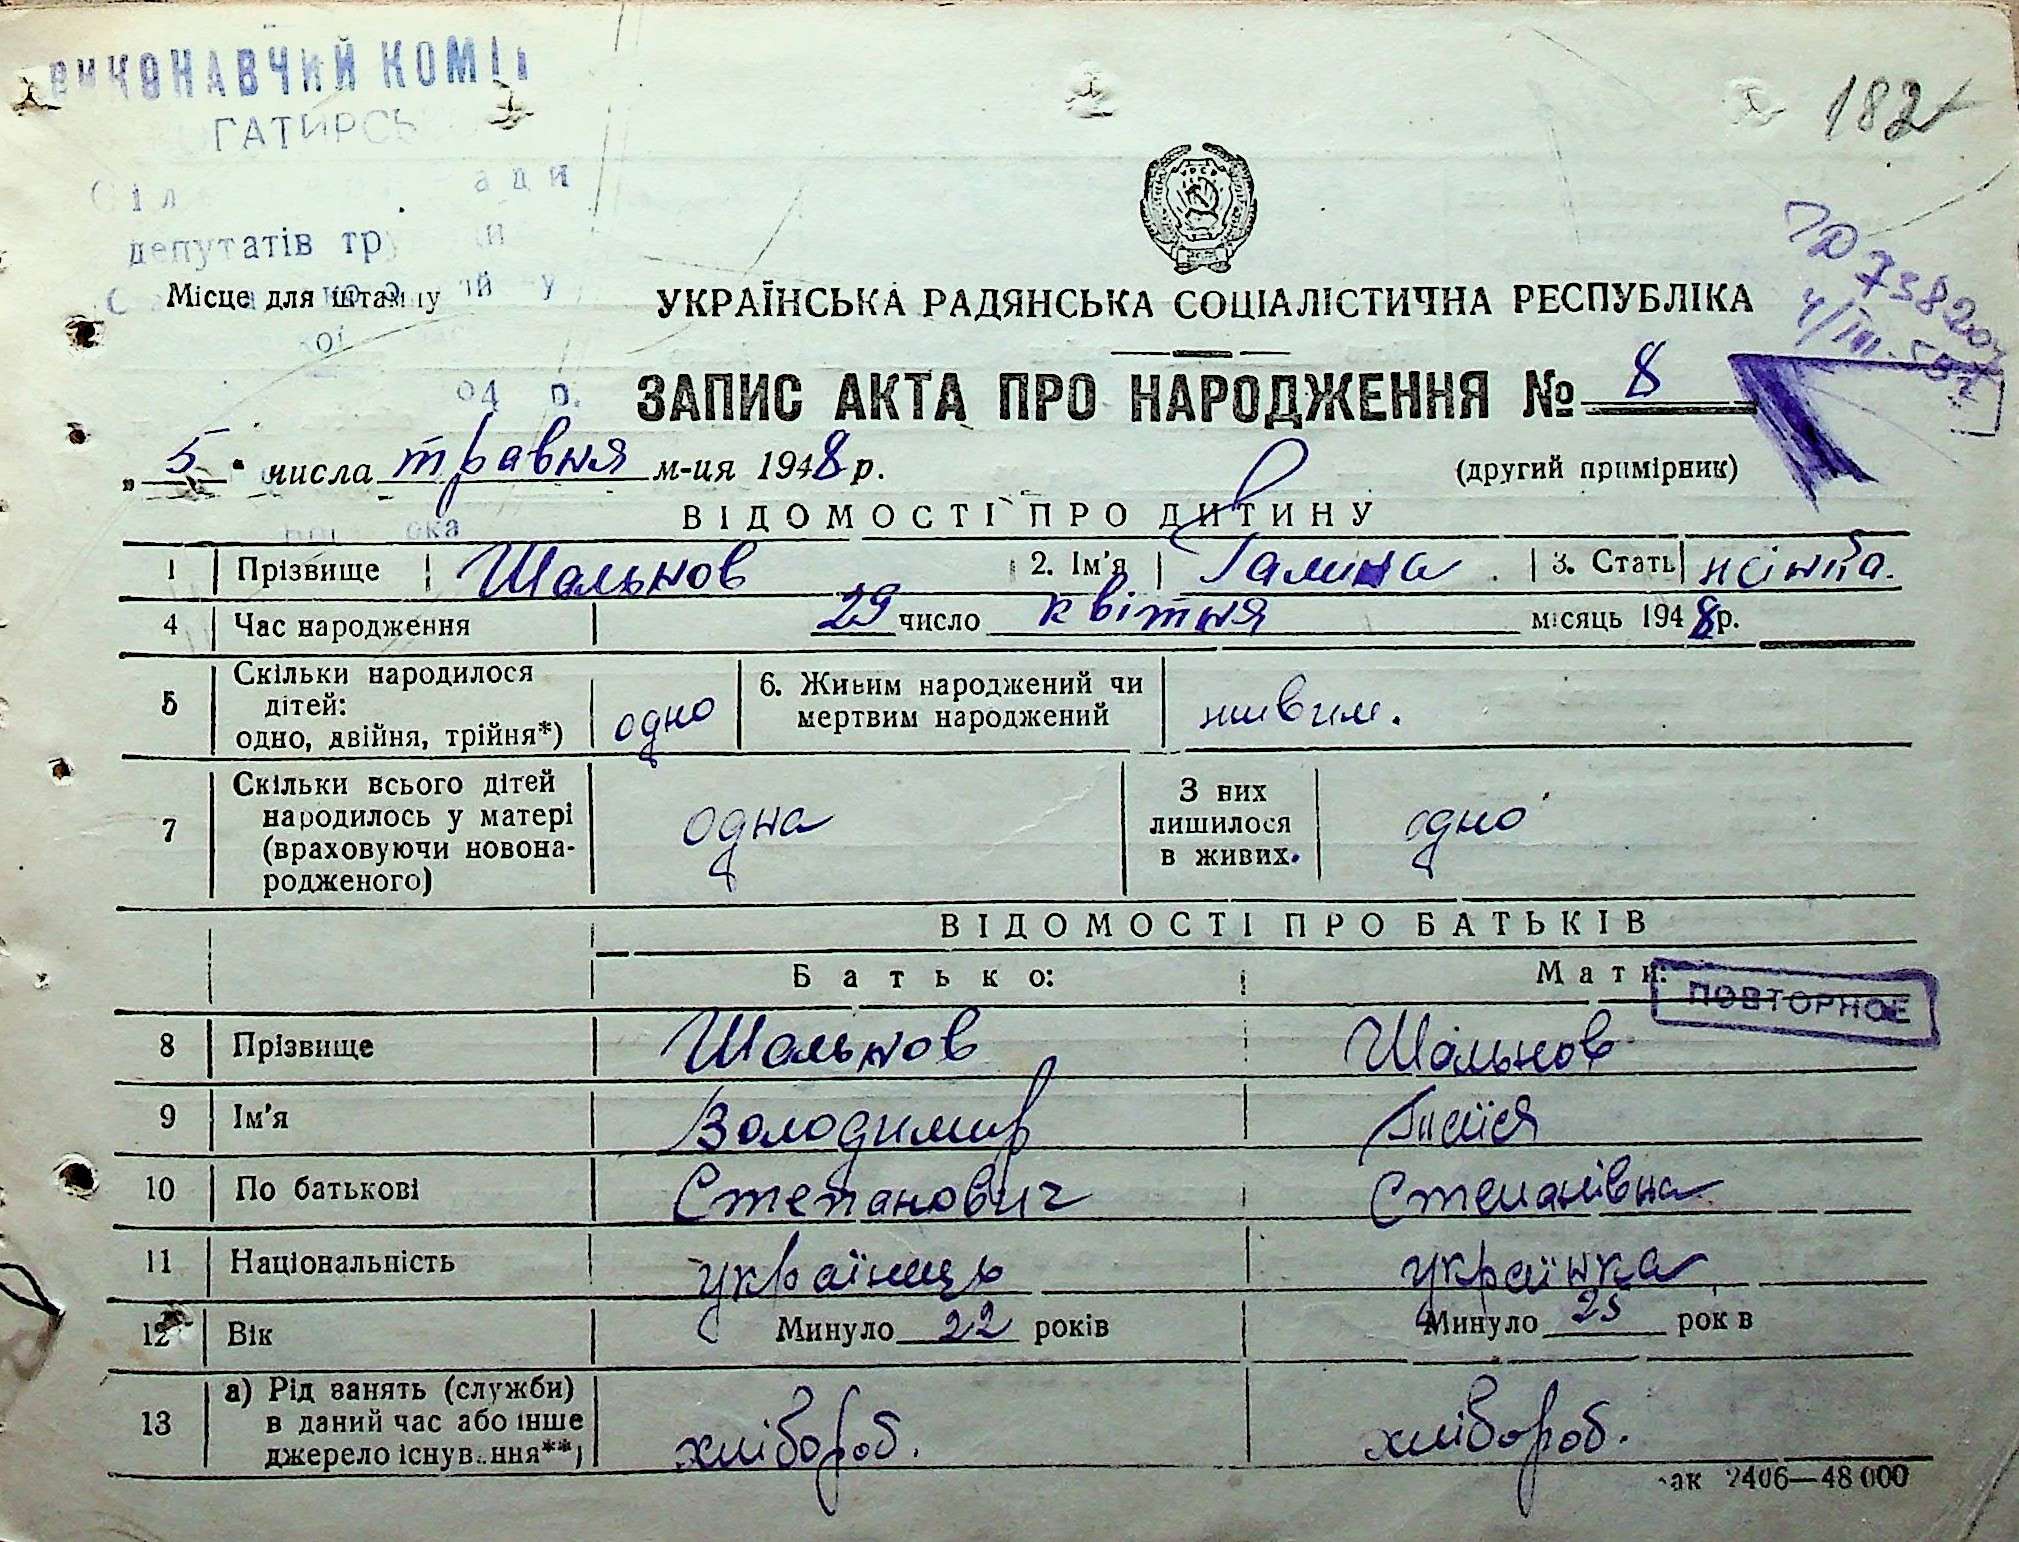 ВИКОНАВЧИЙ КОМІ
ГАТИРСЬ
депутатів тру
182
Місце для штампу
УКРАЇНСЬКА РАДЯНСЬКА СОЦІАЛІСТИЧНА РЕСПУБЛІКА
ЗАПИС АКТА ПРО НАРОДЖЕННЯ № 8
„ 5 " числа травня м-ця 1948 р.
(другий примірник)
ВІДОМОСТІ ПРО ДИТИНУ
1 Прізвище Шальнов 2. Ім'я Галина. 3. Стать жіноча.
4 Час народження 29 число квітня місяць 1948 р.
5 Скільки народилося дітей: одно, двійня, трійня*) одно 6. Живим народжений чи мертвим народжений живим.
7 Скільки всього дітей народилось у матері (враховуючи новонародженого) одна З них лишилося в живих. одно
ВІДОМОСТІ ПРО БАТЬКІВ
Батько: Мати:
ПОВТОРНОЕ
8 Прізвище Шальнов Шальнов
9 Ім'я Володимир
10 По батькові Степанович Степанівна
11 Національність українець українка
12 Вік Минуло 22 років Минуло 25 рок в
13 а) Рід занять (служби) в даний час або інше джерело існув..ння**) хлібороб. хлібороб.
ак 2406—48 000